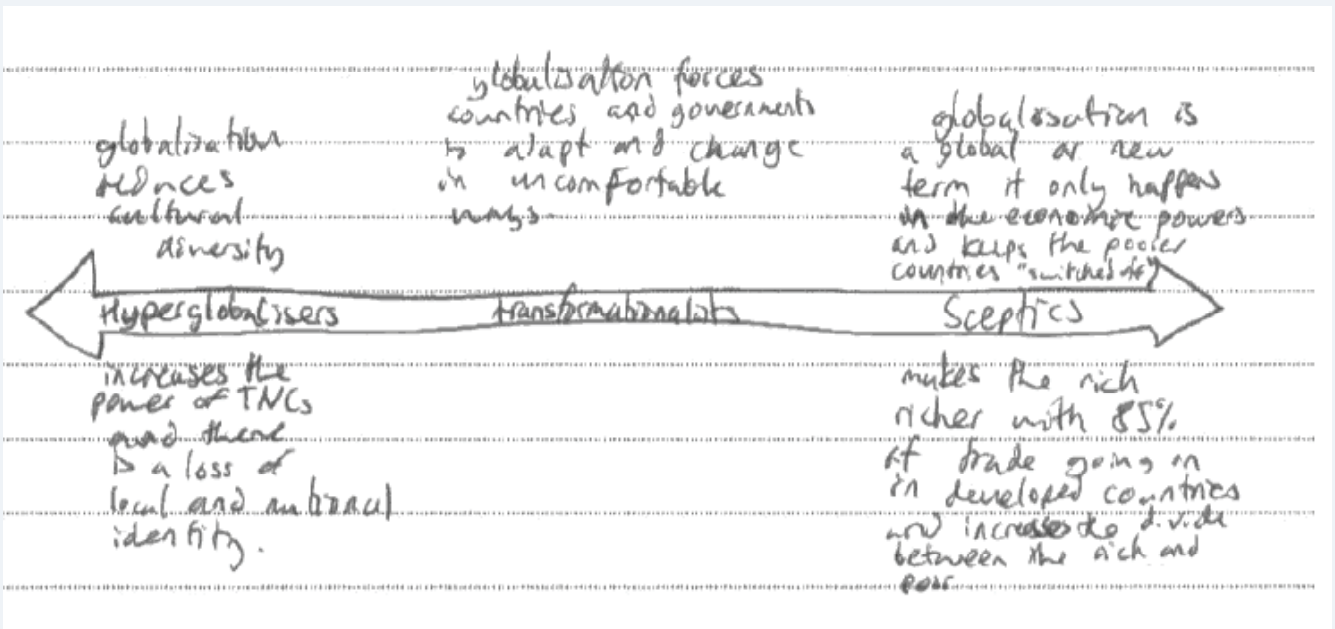 globalisation
reduces
cultural
diversity
globalisation forces
countries and governments
to adapt and change
in uncomfortable
ways.
globalisation is
a global or new
term it only happens
in the economic powers
and keeps the poorer
countries "switched off"
Hyperglobalisers
transformationalists
Sceptics
increases the
power of TNCs
and there
is a loss of
local and national
identity.
makes the rich
richer with 85%
of trade going on
in developed countries
and increases the divide
between the rich and
poor